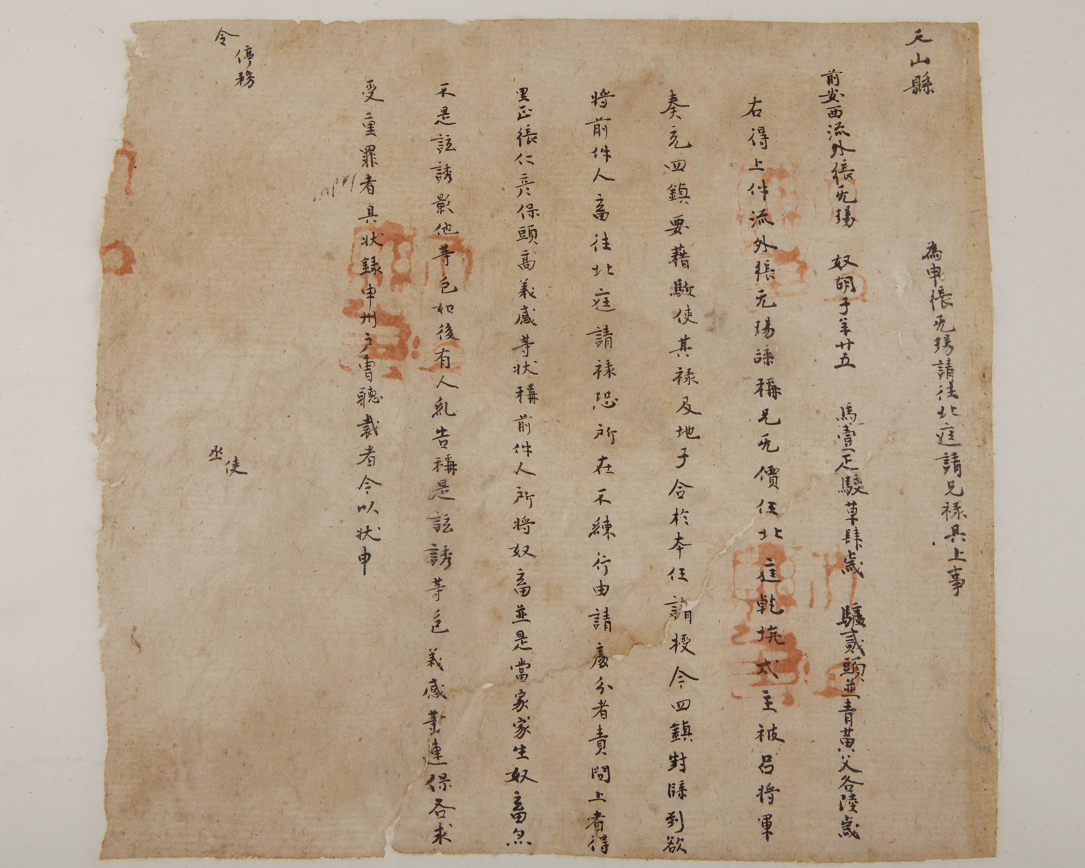 天山縣 為申張无瑒請往北庭請兄祿具上事
前安西流外張无瑒 奴胡子年廿五 馬壹疋駮草肆歲 驢貳頭並青黃父各陸歲
右得上件流外張无瑒牒稱兄无價任北庭乾坑戍主被呂將軍
奏充四鎮要籍驅使其祿及地子合於本任請授今四鎮封牒到欲
將前件人畜往北庭請祿恐所在不練行由請處分者責問上者得
里正張仁彥保頭高義感等狀稱前件人所將奴畜並是當家家生奴畜亦
不是詃誘影他等色如後有人糺告稱是詃誘等色義感等連保各求
受重罪者具狀錄申州戶曹聽裁者今以狀申
令 停務 丞 使